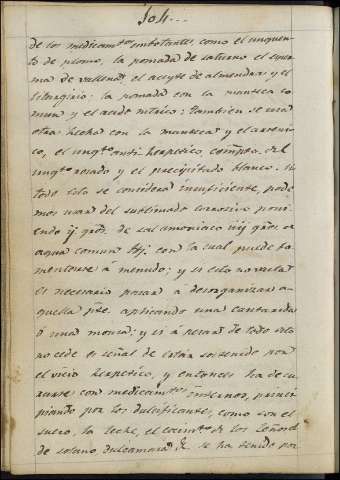 104...
de los medicam.tos embotantes, como el unguen-
to de plomo, la pomada de saturno el esper-
ma de vallena, el aceyte de almendras y el
litargirio: la pomada con la manteca co-
mun y el acido nitrico: tambien se usa
otra hecha con la manteca y el arseni-
co, el ung.to anti-herpetico comp.ta del
ung.to rosado y el precipitado blanco. Si
todo esto se considera insuficiente, pode-
mos usar del sublimado corrosivo poni-
endo ij gros. de sal amoniaco iiij gros. en
agua comun con la cual puede fo-
mentarse á menudo; y si esto no vasta
es necesario pasar á desorganizar a-
quella pte. aplicando una cantarida
ó una moxa; y si á pesar de todo esto
no cede es señal de estar sostenido por
el vicio herpetico, y entonces ha de cu-
rarse con medicam.tos internos, princi-
piando por los dulcificantes, como son el
suero, la leche, el cocim.to de los
de solano dulcamara &. se ha tenido por